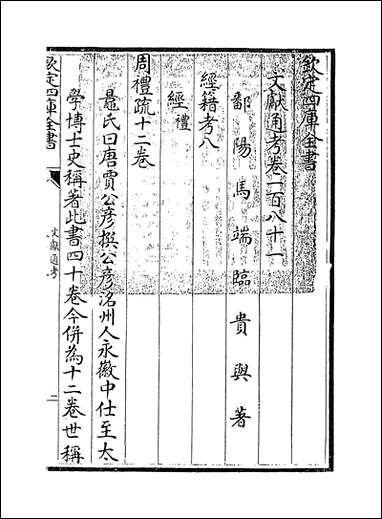 欽定四庫全書
文獻通考卷一百八十一
鄱陽馬端臨貴與著
經籍考八
經禮
周禮疏十二卷
鼂氏曰唐賈公彦撰公彦洺州人永徽中仕至太
學博士史稱著此書四十卷今併為十二卷世稱
欽定四庫全書
文獻通考